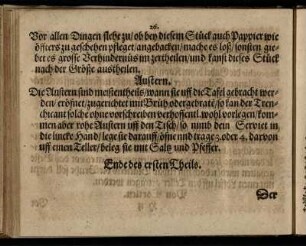 26.
Vor allen Dingen siehe zu/ ob bey diesem Stück auch Pappier wie
öffters zu geschehen pfleget/ angebacken/ mache es loß/ sonsten gie-
bet es grosse Verhindernüs im zertheilen/ und kanst dieses Stück
nach der Größe austheilen.
Austern.
Die Austern sind meistentheils/ wann sie uff die Tafel gebracht wer-
den/ eröfnet/ zugerichtet mit Brüh oder gebraté/ so kan der Tren-
chieant solche ohne vorschreiben verhoffentl. wohl vorlegen/ kom-
men aber rohe Austern uff den Tisch/ so nimb dein Serviet in
die lincke Hand/ lege sie darauff/ öfne und trage 3. oder 4. darvon
uff einen Teller/ beleg sie mit Saltz und Pfeffer.
Ende des ersten Theils.
Der